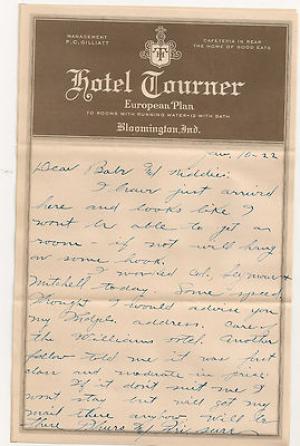 MANAGEMENT
P.C. GILLIATT
CAFETERIA IN REAR
THE HOME OF GOOD EATS
Hotel Tourner
European Plan
70 ROOMS WITH RUNNING WATER-15 WITH BATH
Bloomington, Ind.
Jan. 10-22
Dear Babe & Kiddies:
I have just arrived
here and looks like I
wont be able to get a
room - if not will hang
on some hook.
I worked Seymour &
Mitchell today. Some speed
thought I would advise you
my address. Care of
the Williams Hotel. Another
fellow told me it was first
class and moderate in price.
If it dont suit me I
wont stay but will get my
mail there anyhow. Will be
there